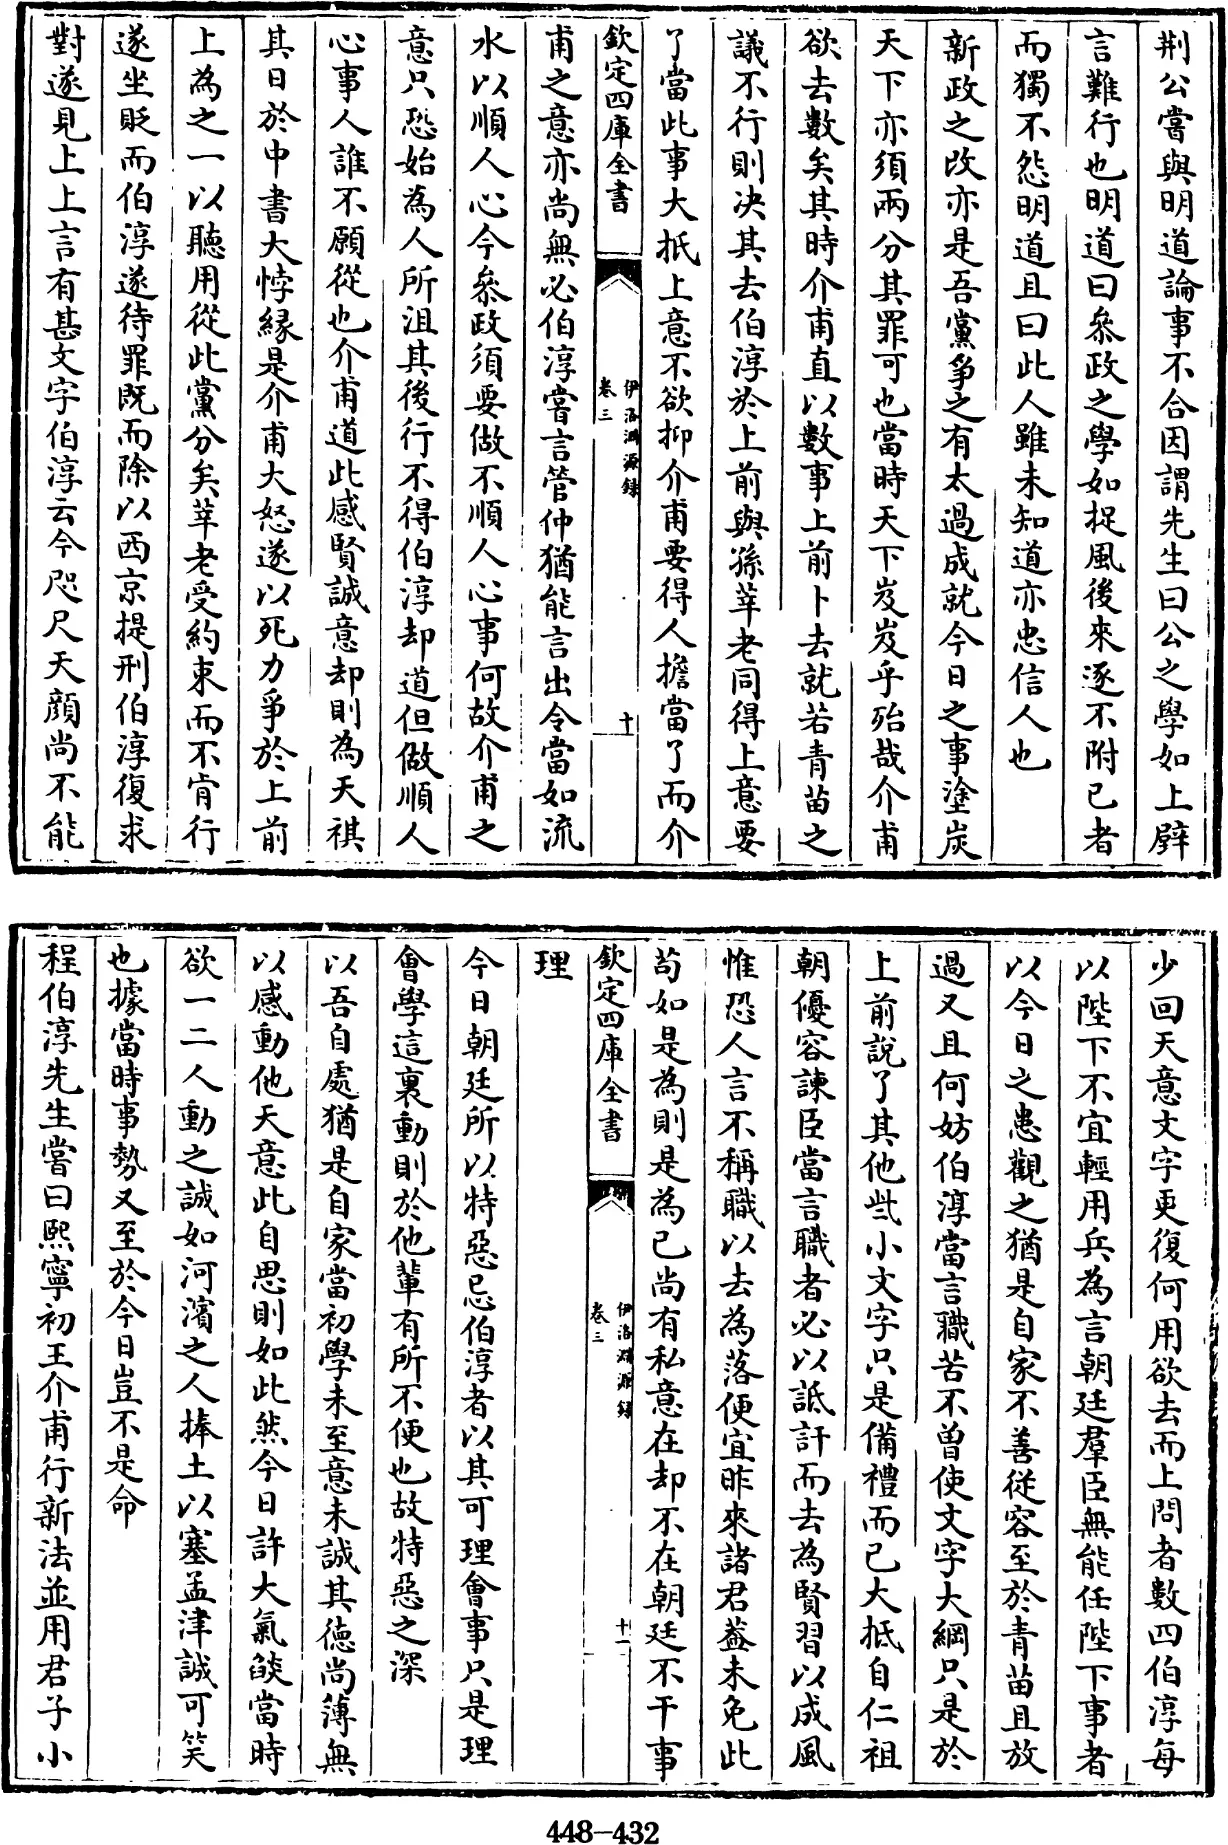 荆公嘗與明道論事不合因謂先生曰公之學如上壁
言難行也明道曰叅政之學如捉風後來逐不附已者
而獨不怨明道且曰此人雖未知道亦忠信人也
新政之改亦是吾黨爭之有太過成就今日之事塗炭
天下亦須兩分其罪可也當時天下岌岌乎殆哉介甫
欲去數矣其時介甫直以數事上前卜去就若青苗之
議不行則决其去伯淳於上前與孫莘老同得上意要
了當此事大抵上意不欲抑介甫要得人擔當了而介
欽定四庫全書
伊洛淵源録
卷三
十
甫之意亦尚無必伯淳嘗言管仲猶能言出令當如流
水以順人心今叅政須要做不順人心事何故介甫之
意只恐始為人所沮其後行不得伯淳却道但做順人
心事人誰不願從也介甫道此感賢誠意却則為天祺
其日於中書大悖緣是介甫大怒遂以死力爭於上前
上為之一以聽用從此黨分矣莘老受約束而不肯行
遂坐貶而伯淳遂待罪既而除以西京提刑伯淳復求
對遂見上上言有甚文字伯淳云今咫尺天顔尚不能
少回天意文字更復何用欲去而上問者數四伯淳每
以陛下不宜輕用兵為言朝廷羣臣無能任陛下事者
以今日之患觀之猶是自家不善從容至於青苗且放
過又且何妨伯淳當言職苦不曾使文字大綱只是於
上前說了其他些小文字只是備禮而已大抵自仁祖
朝優容諫臣當言職者必以詆訐而去為賢習以成風
惟恐人言不稱職以去為落便宜昨來諸君葢未免此
苟如是為則是為已尚有私意在却不在朝廷不干事
欽定四庫全書
伊洛淵源録
卷三
十一
理
今日朝廷所以特惡忌伯淳者以其可理會事只是理
會學這裏動則於他輩有所不便也故特惡之深
以吾自處猶是自家當初學未至意未誠其德尚薄無
以感動他天意此自思則如此然今日許大氣燄當時
欲一二人動之誠如河濱之人捧土以塞孟津誠可笑
也據當時事勢又至於今日豈不是命
程伯淳先生嘗曰熙寧初王介甫行新法並用君子小
448-432